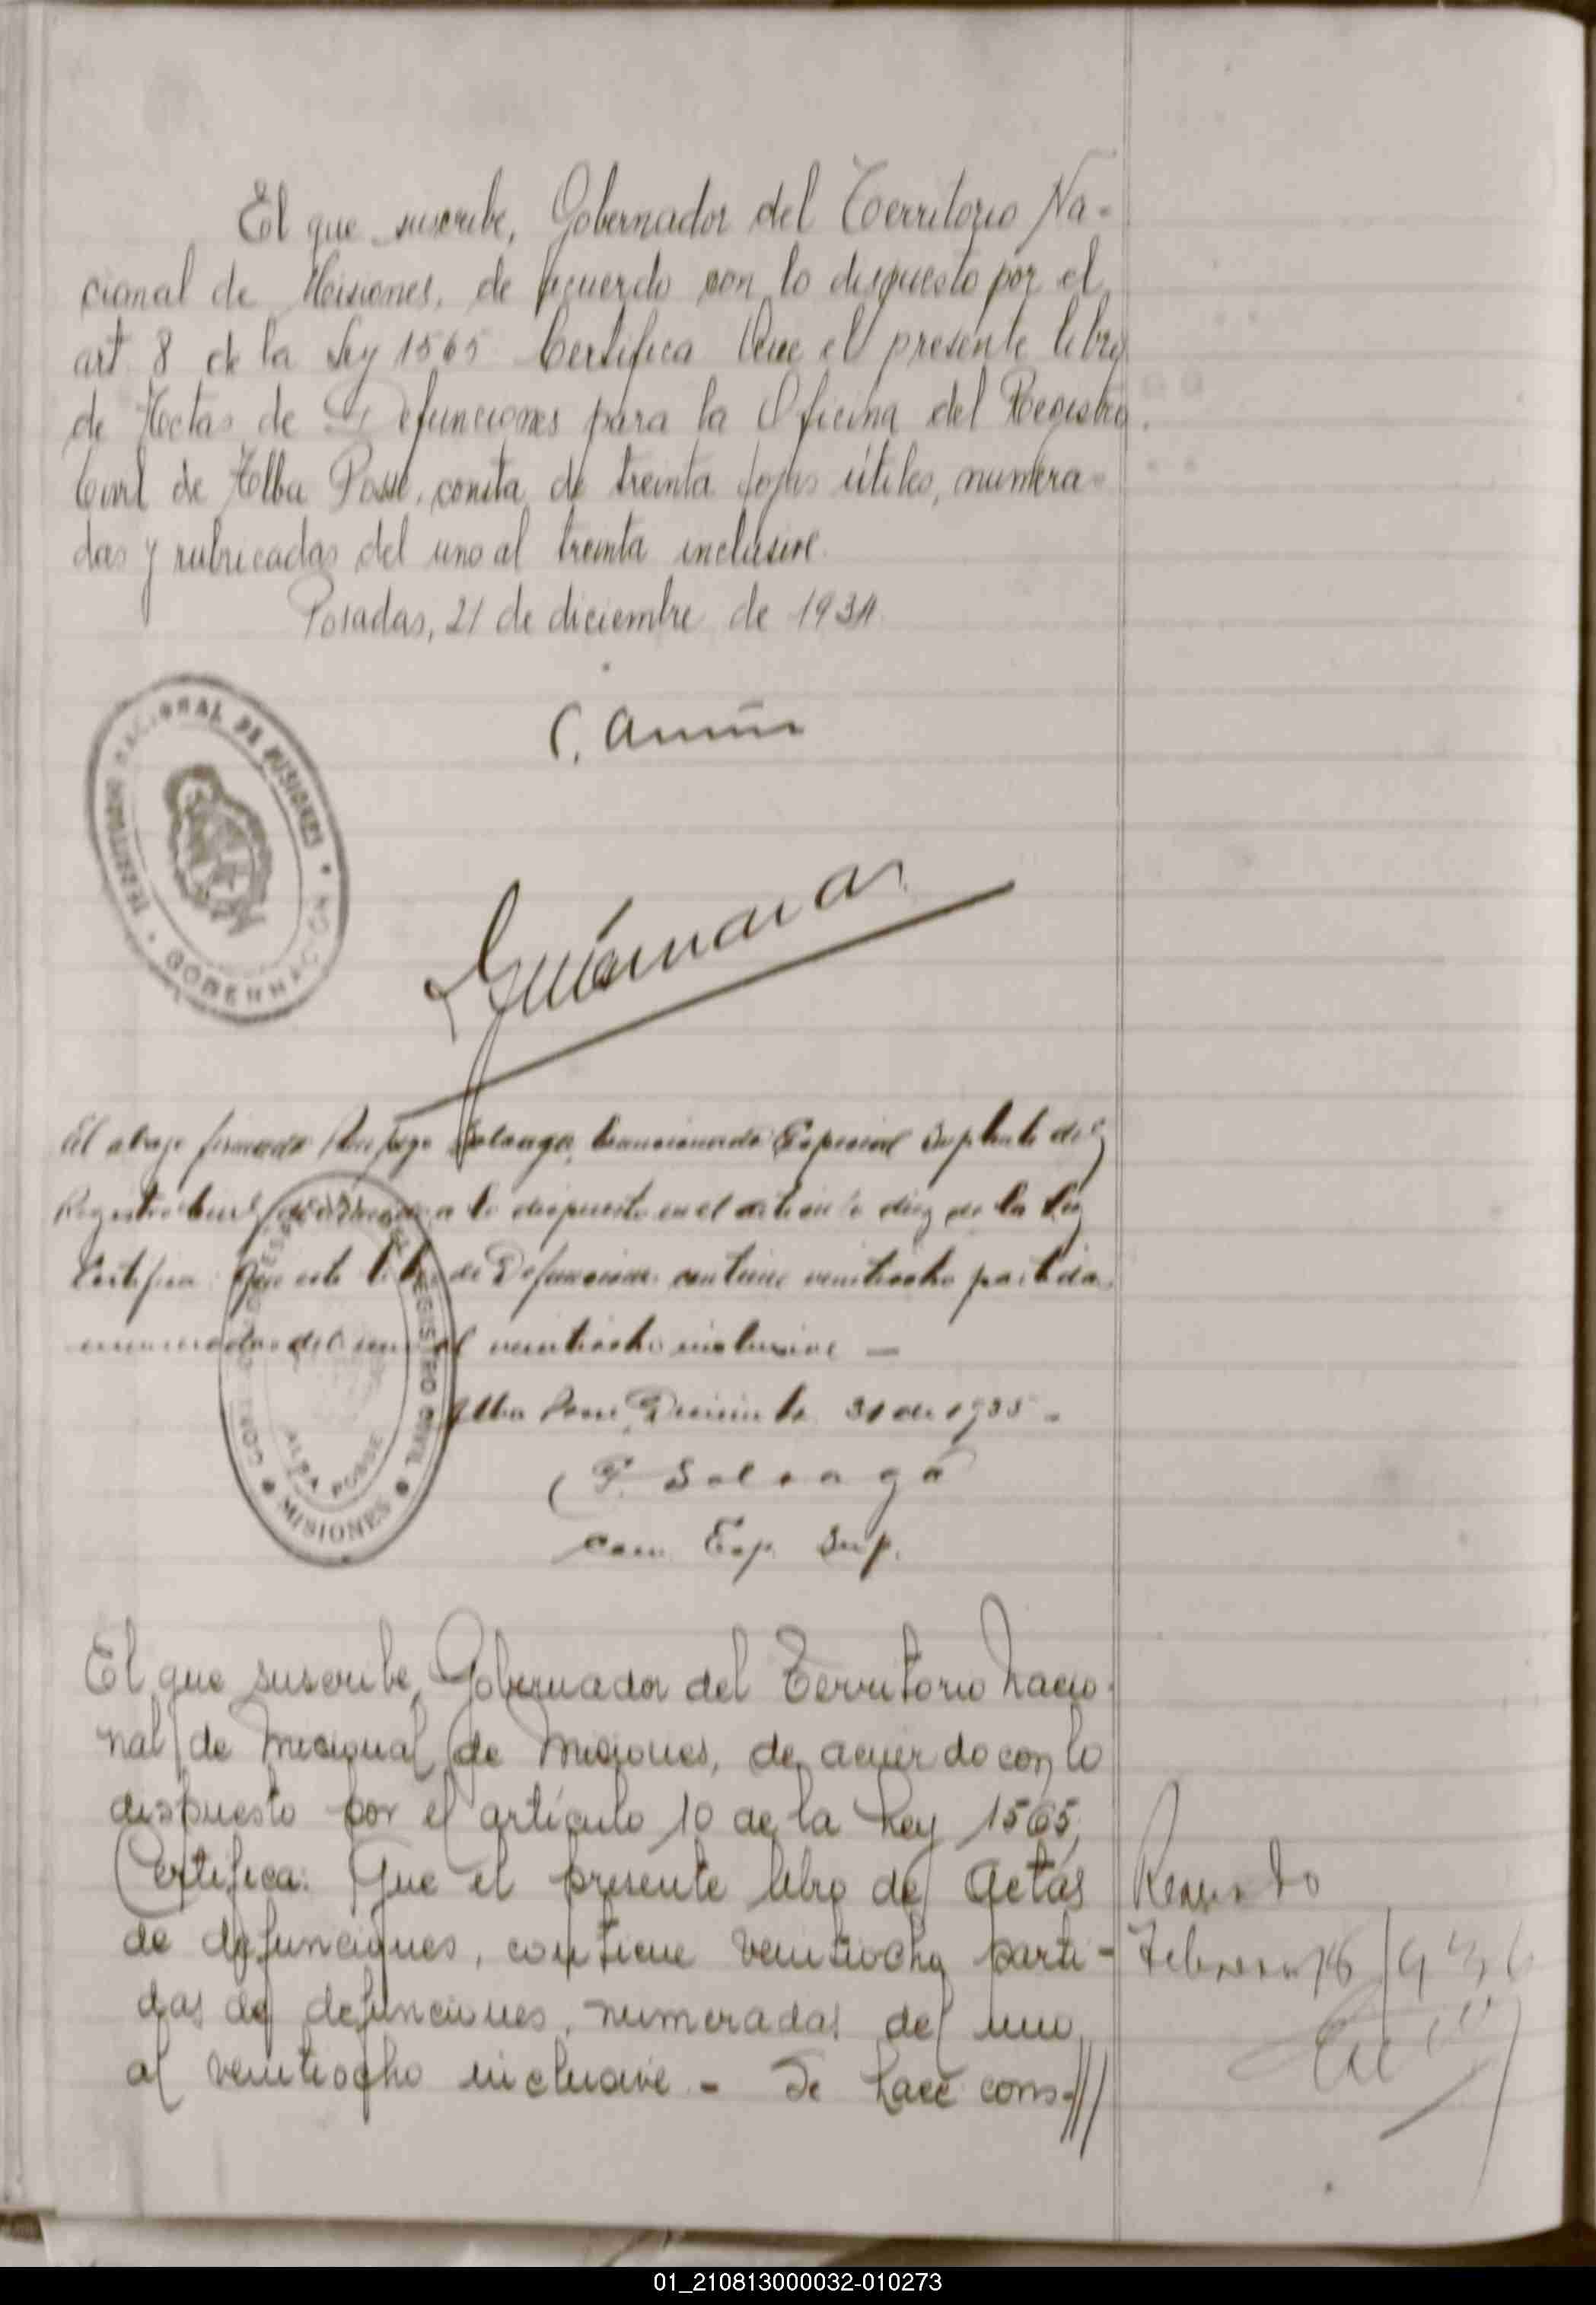 El que suscribe, Gobernador del Territorio Na-
cional de Misiones, de acuerdo con lo dispuesto por el
art 8 de la Ley 1565 Certifica Que el presente libro
de Actas de Defunciones para la Oficina del Registro
Civil de Alba Posse, consta de treinta fojas útiles, numera-
das y rubricadas del uno al treinta inclusive.
Posadas, 21 de diciembre de 1934
TERRITORIO NACIONAL DE MISIONES
GOBERNACION
El abajo firmado Solsaga, Comisionado Especial Suplente del
Registro Civil a lo dispuesto en el articulo diez de la Ley
Certifica: Que este libro de Defunciones contiene veintiocho partidas
enumeradas del uno al veintiocho inclusive —
Alba Posse, Diciembre 31 de 1935 -
REGISTRO CIVIL
ALBA POSSE
MISIONES
com. Esp. Sup.
El que suscribe, Gobernador del Territorio Nacio-
nal de Misional de Misiones, de acuerdo con lo
dispuesto por el artículo 10 de la Ley 1565,
Certifica: Que el presente libro de Actas
de defunciones, contiene veintiocho parti-
das de defunciones, numeradas del uno
al veintiocho inclusive - Se hace cons-///
Revisado
Febrero 16/936
01_210813000032-010273